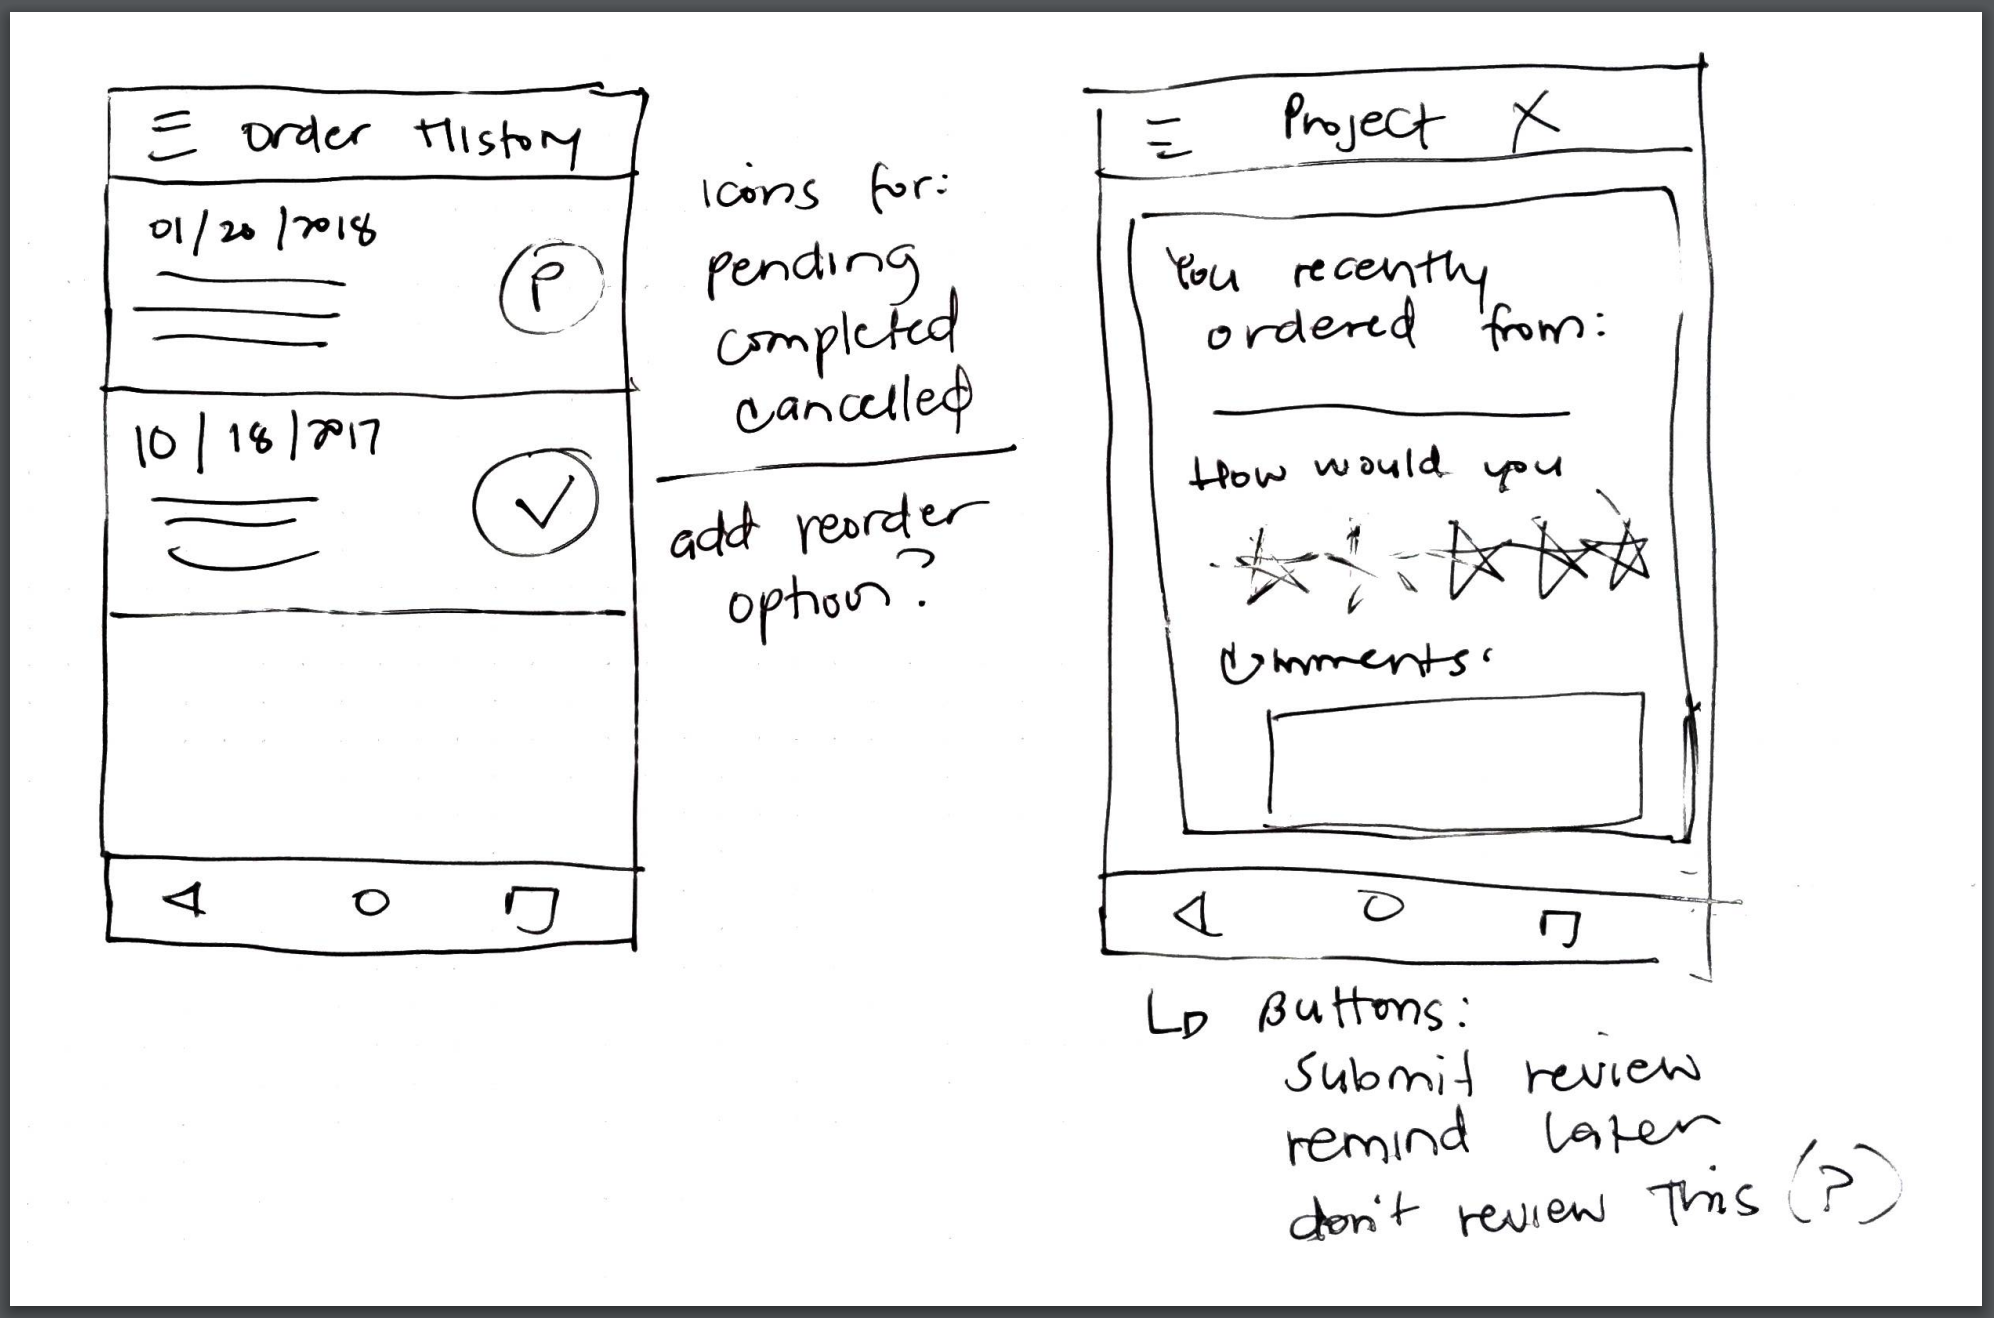 Order History
01/20/2018
P
10/18/2017
icons for:
pending
completed
cancelled
add reorder
option?
Project X
You recently
ordered from:
How would you
Comments:
Buttons:
submit review
remind later
don't review this (?)